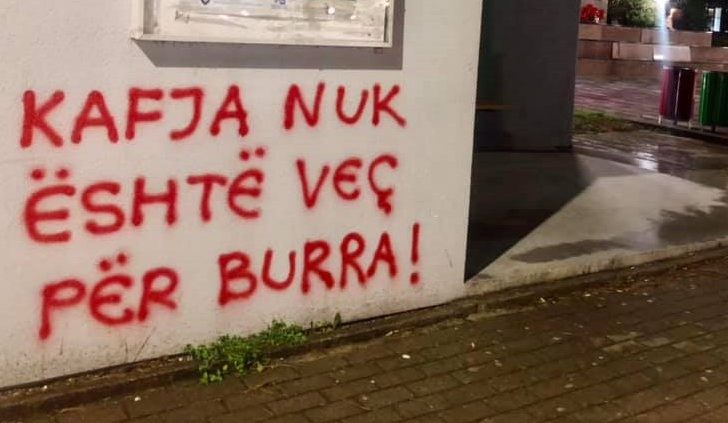 KAFJA NUK
ËSHTË VEÇ
PËR BURRA!